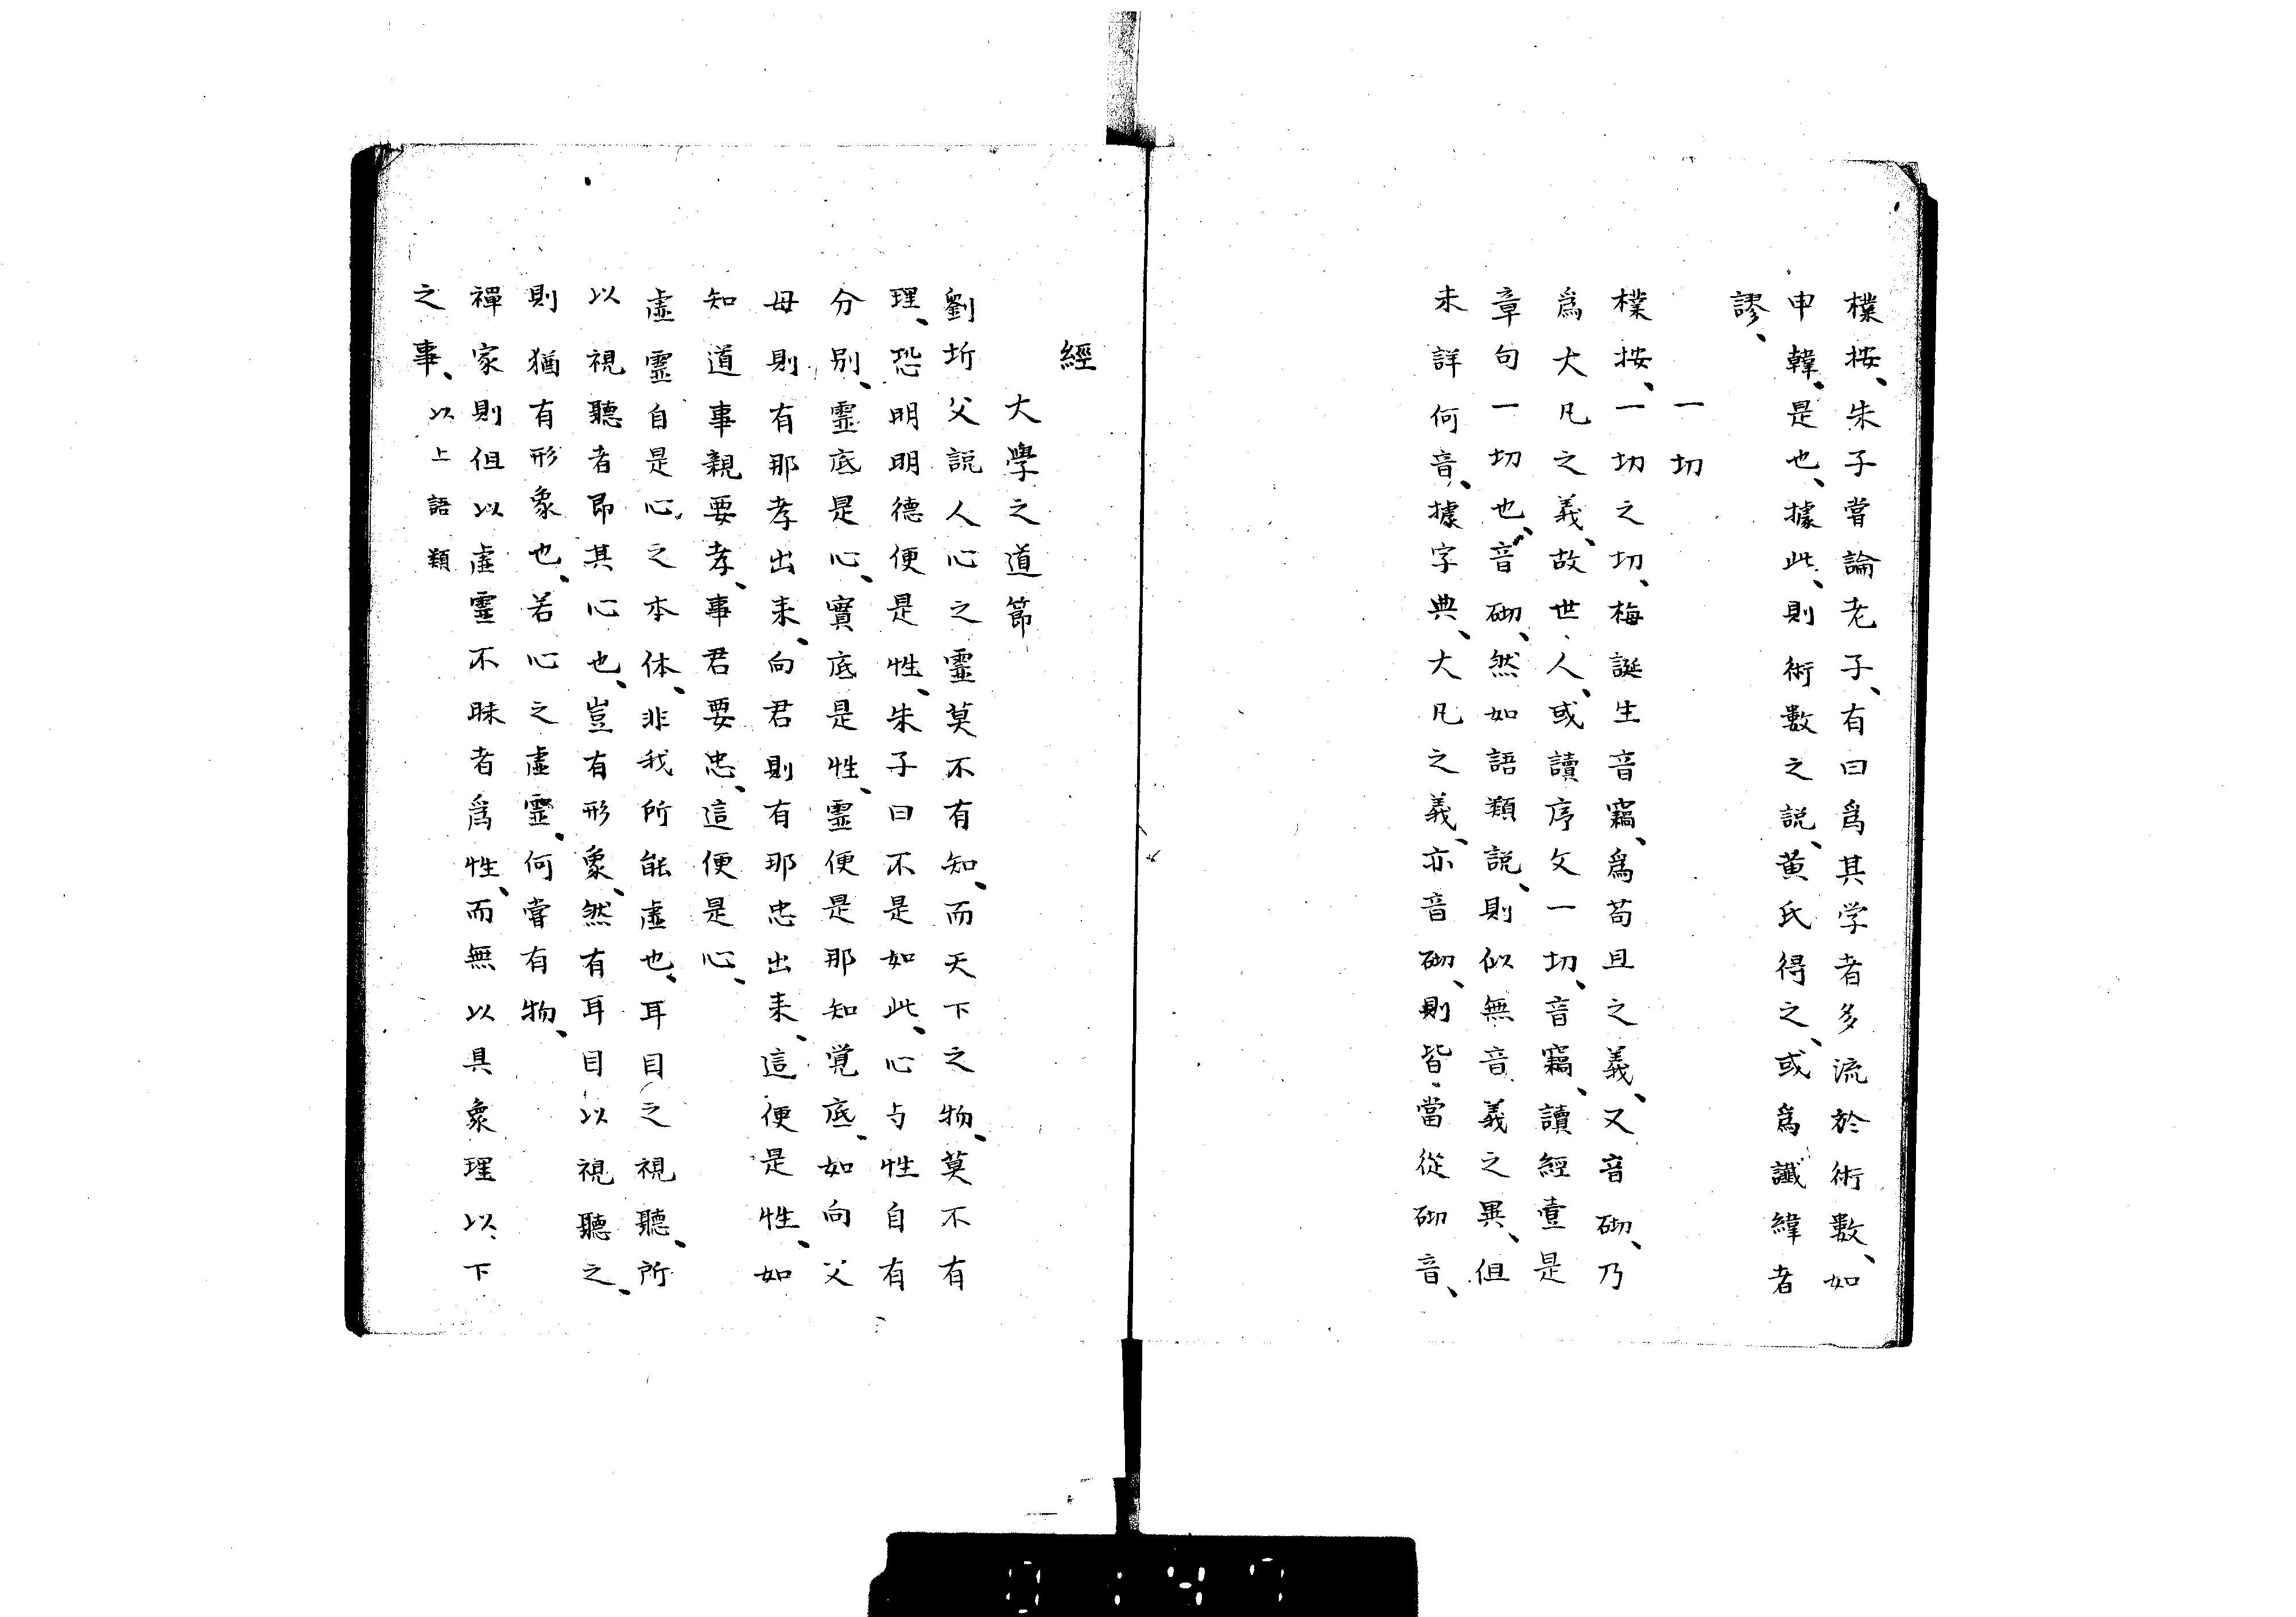 樸按、朱子嘗論老子、有曰爲其学者多流於術數、如
申韓、是也、據此、則術數之説、黄氏得之、或爲讖緯者
謬、
一切
樸按、一切之切、梅誕生音竊、爲苟且之義、又音砌、乃
爲大凡之義、故世人、或讀序文一切、音竊、讀經壹是
章句一切也、音砌、然如語類説、則似無音義之異、但
未詳何音、據字典、大凡之義、亦音砌、則皆當從砌音、
經
大學之道節
劉圻父説人心之靈莫不有知、而天下之物、莫不有
理、恐明明德便是性、朱子曰不是如此、心与性自有
分別、靈底是心、實底是性、靈便是那知覚底、如向父
母則有那孝出来、向君則有那忠出来、這便是性、如
知道事親要孝、事君要忠、這便是心、
虚靈自是心之本体、非我所能虚也、耳目之視聽、所
以視聽者即其心也、豈有形象、然有耳目以視聽之、
則猶有形象也、若心之虚靈、何嘗有物、
禪家則但以虚靈不昧者爲性、而無以具衆理以下
之事、以上語類